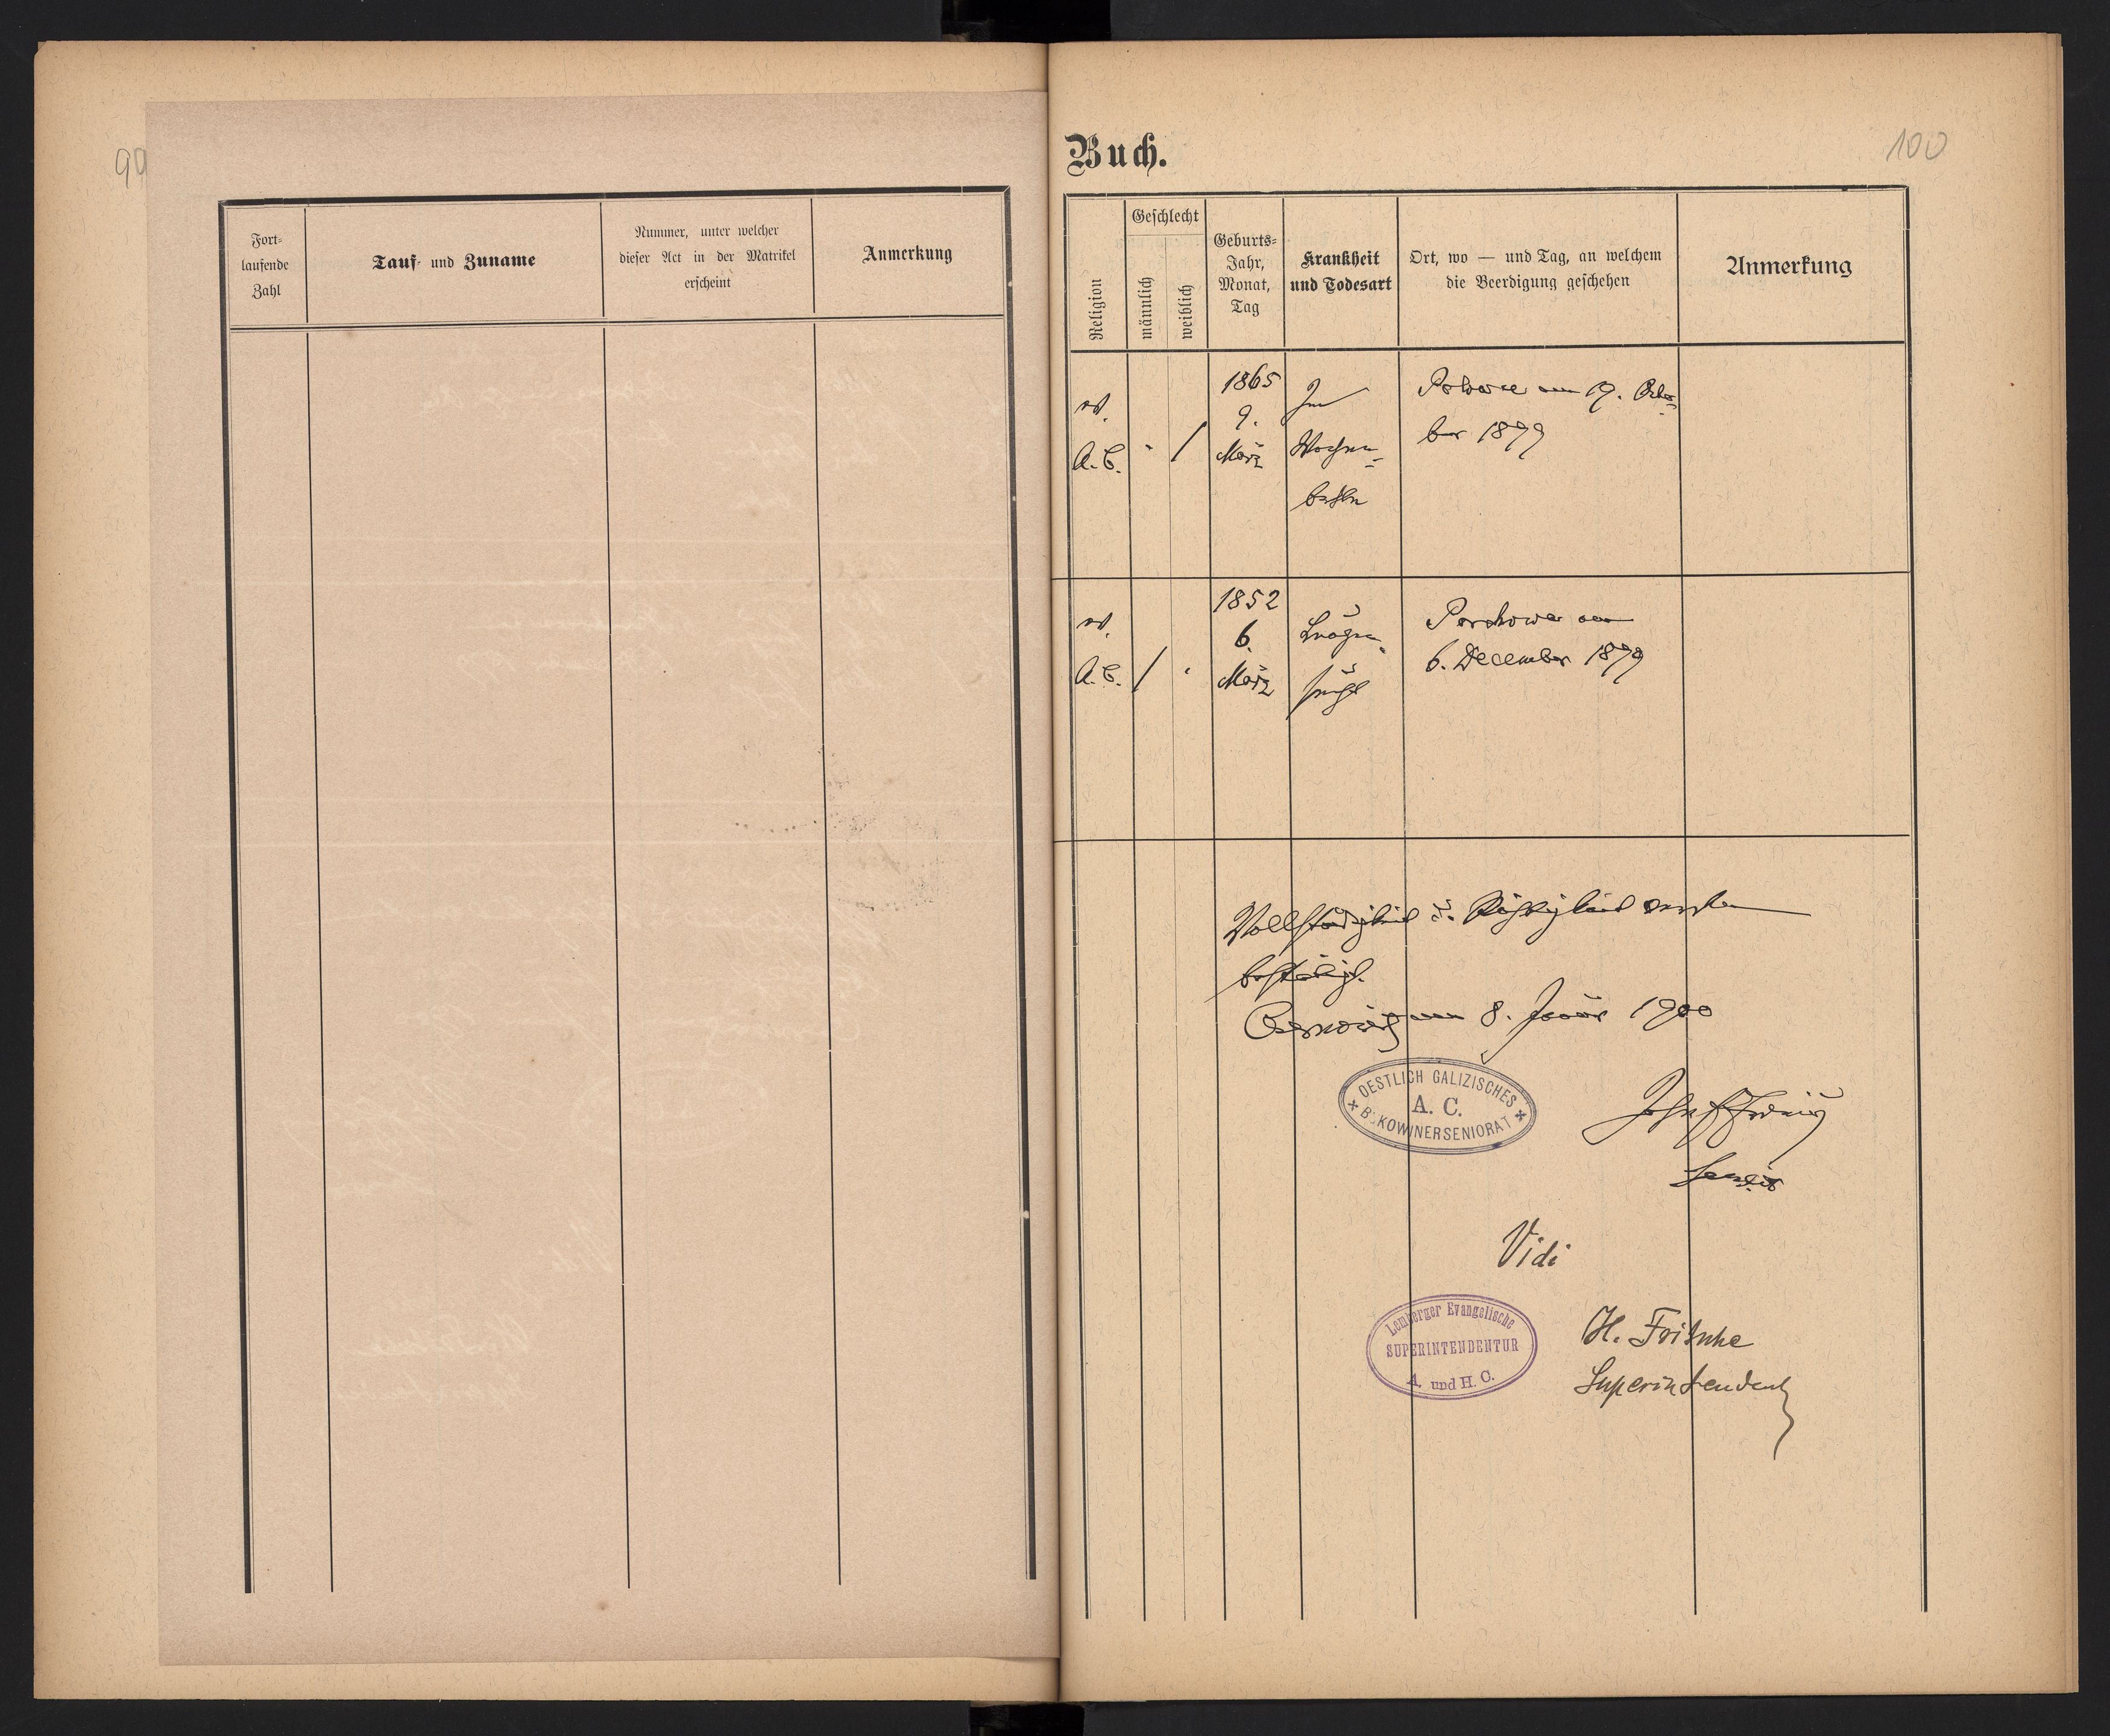 99
Fort-
laufende
Zahl
Tauf- und Zuname
Nummer, unter welcher
dieser Act in der Matrikel
erscheint
Anmerkung
100
Buch.
Religion
Geschlecht
männlich
weiblich
Geburts-
Jahr,
Monat,
Tag
Krankheit
und Todesart
Ort, wo — und Tag, an welchem
die Beerdigung geschehen
Anmerkung
ev.
A. C.
/
1865
9.
März
Im
Wochen-
bette
am 19. Octo-
ber 1899
ev.
A. C.
/
1852
6.
März
Lungen-
am
6. December 1899
Vollständigkeit u. Richtigkeit werden
bestätigt.
am 8. Januar 1900
OESTLICH GALIZISCHES
A. C.
BUKOWINER SENIORAT
Josef
Senior
Vidi
Lemberger Evangelische
SUPERINTENDENTUR
A. und H. C.
H. Fritsche
Superintendent